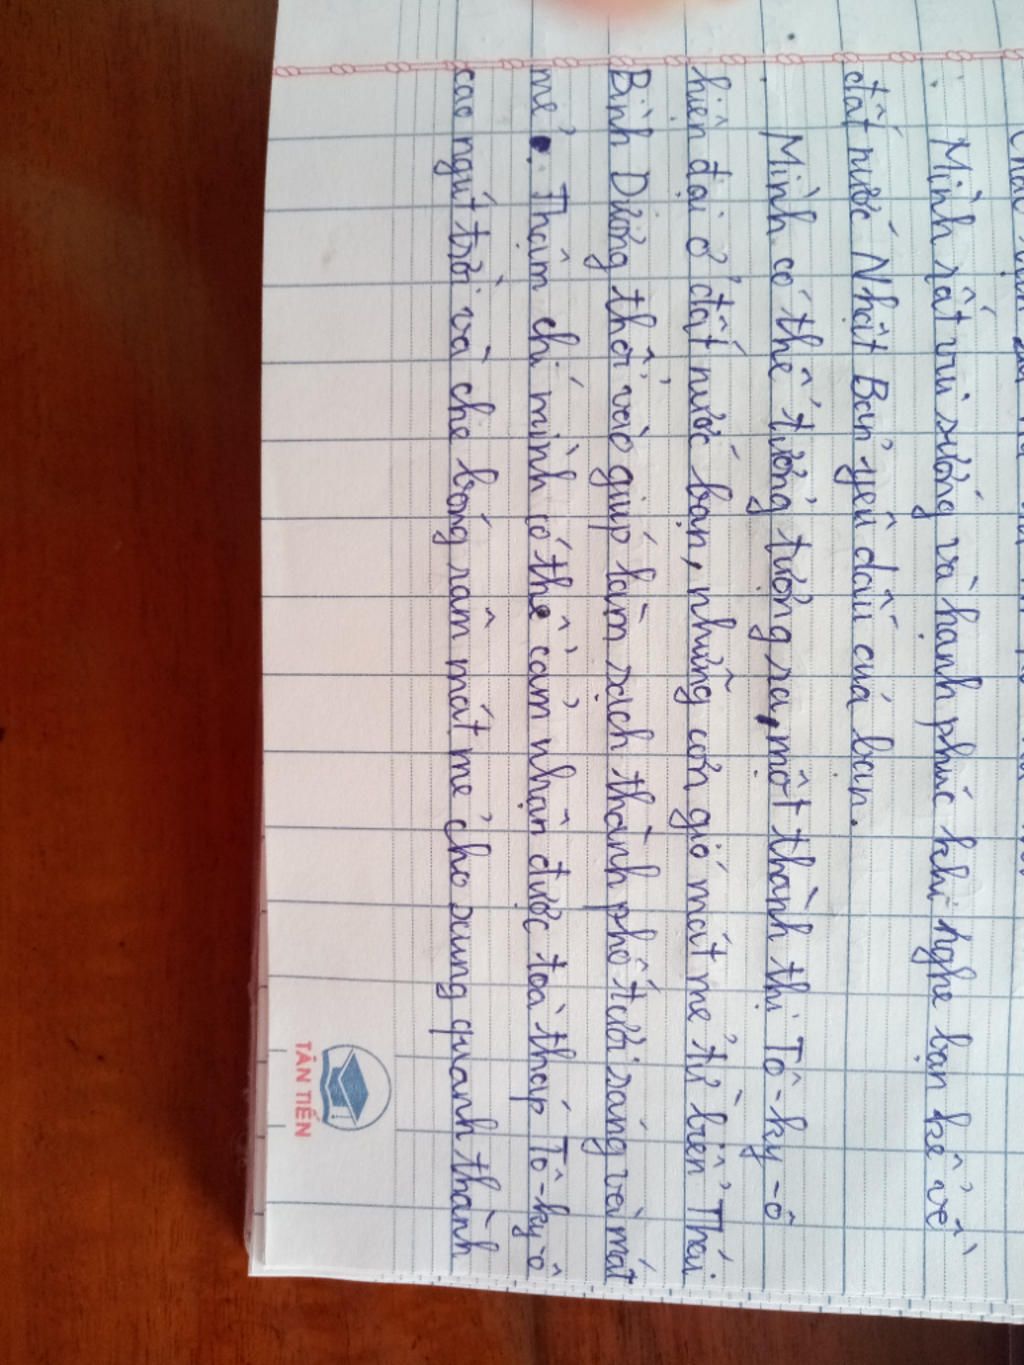 Mình rất vui sướng và hạnh phúc khi nghe bạn kể về
đất nước Nhật Bản yêu dấu của bạn.
Mình có thể tưởng tượng ra, một thành thị Tô-ky-ô
hiện đại ở đất nước bạn, những cơn gió mát mẻ từ biển Thái
Bình Dương thổi vào giúp làm sạch thành phố tươi sáng và mát
mẻ. Thậm chí mình có thể cảm nhận được toà tháp Tô-ky-ô
cao ngút trời và che bóng râm mát mẻ cho xung quanh thành
TÂN TIẾN